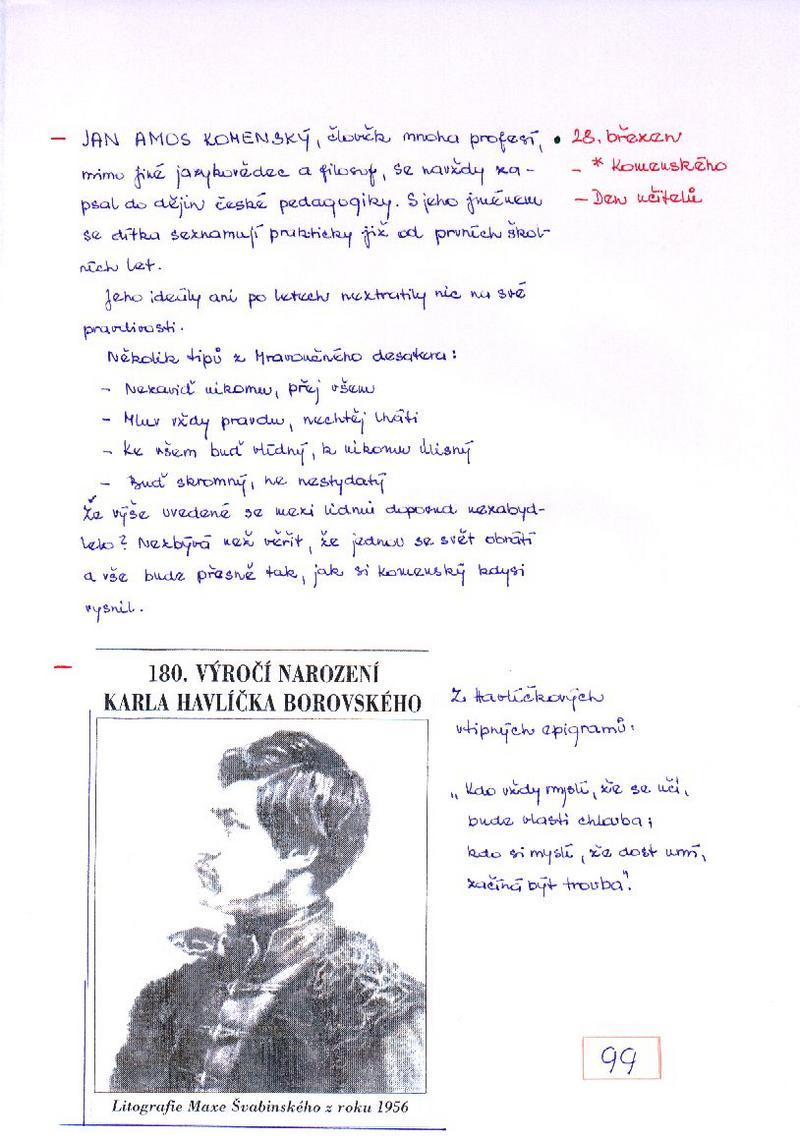 – JAN AMOS KOMENSKÝ, člověk mnoha profesí,
mimo jiné jazykovědec a filosof, se navždy za-
psal do dějin české pedagogiky. S jeho jménem
se dítka seznamují prakticky již od prvních škol-
ních let.
Jeho ideály ani po letech neztratily nic na své
pravdivosti.
Několik tipů z Mravoučného desatera:
– Nezaviď nikomu, přej všem
– Mluv vždy pravdu, nechtěj lháti
– Ke všem buď vlídný, k nikomu úlisný
– Buď skromný, ne nestydatý
Že výše uvedené se mezi lidmi doposud nezabyd-
lelo? Nezbývá než věřit, že jednou se svět obrátí
a vše bude přesně tak, jak si Komenský kdysi
vysnil.
• 28. březen
– * Komenského
– Den učitelů
– 180. VÝROČÍ NAROZENÍ
KARLA HAVLÍČKA BOROVSKÉHO
Litografie Maxe Švabinského z roku 1956
Z Havlíčkových
vtipných epigramů:
„Kdo vždy myslí, že se učí,
bude vlasti chlouba;
kdo si myslí, že dost umí,
začíná být trouba".
99